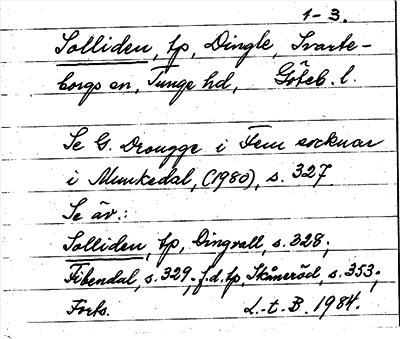 1-3.
Solliden, tp, Dingle, Svarte-
borgs sn, Tunge hd, Göteb. l.
Se G. Drougge i Fem socknar
i Munkedal, (1980), s. 327
Se äv.:
Solliden, tp, Dingvall, s. 328;
Fibendal, s. 329; f.d. tp, Skåneröd, s. 353;
Forts. L.-t. B. 1984.